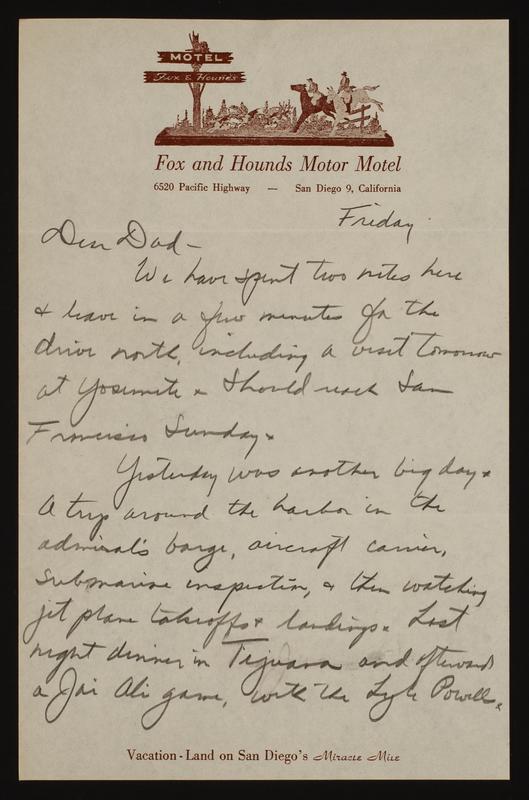 MOTEL
Fox & Hounds
Fox and Hounds Motor Motel
6520 Pacific Highway — San Diego 9, California
Friday
Dear Dad -
We have spent two nites here
& leave in a few minutes for the
drive north, including a visit tomorrow
at Yosemite. Should reach San
Francisco Sunday.
Yesterday was another big day.
A trip around the harbor in the
admiral's barge, aircraft carrier,
submarine inspection, & then watching
jet plane takeoffs & landings. Last
night dinner in Tijuana and afterwards
a Jai Ali game, with the Lyle Powells.
Vacation-Land on San Diego's Miracle Mile